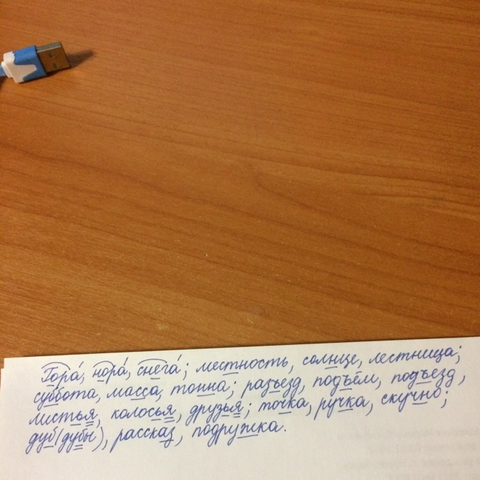 Гора́, нора́, снега́; местность, солнце, лестница;
суббота, масса, тонна; разъезд, подъём, подъезд,
листья, колосья, друзья; точка, ручка, скучно;
дуб (дубы), рассказ, подружка.